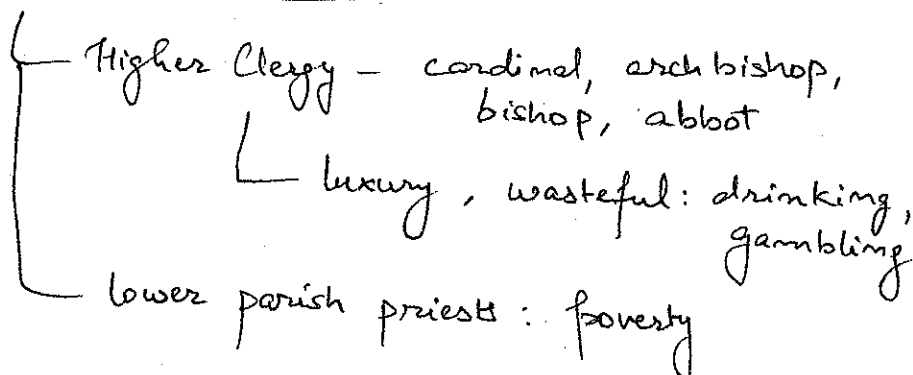 Higher Clergy - cardinal, archbishop,
bishop, abbot
luxury, wasteful: drinking,
gambling
lower parish priests: poverty